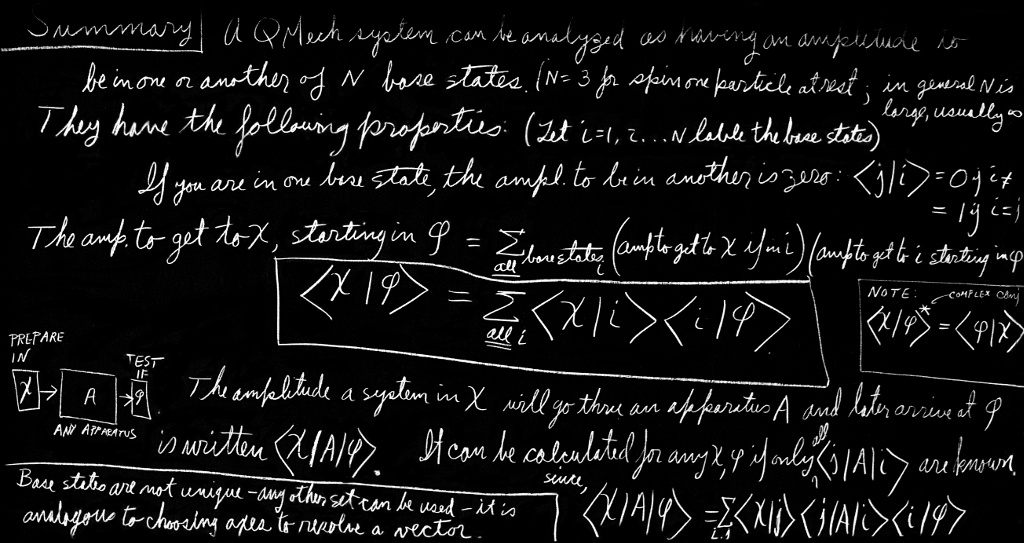 Summary A Q Mech system can be analyzed as having an amplitude to
be in one or another of N base states. (N= 3 for spin one particle at rest; in general N is
large, usually ∞
They have the following properties: (Let i=1, 2...N lable the base states)
If you are in one base state, the ampl. to be in another is zero: <j|i> = 0 if i≠
= 1 if i=j
The amp. to get to χ, starting in φ = Σ all base states i (amp to get to χ if in i) (amp to get to i starting in φ
<χ|φ> = Σ all i <χ|i><i|φ>
NOTE: COMPLEX CONJ
<χ|φ>* = <φ|χ>
PREPARE
IN
TEST
IF
χ → A → φ
ANY APPARATUS
The amplitude a system in χ will go thru an apparatus A and later arrive at φ
is written <χ|A|φ>. It can be calculated for any χ, φ if only all <j|A|i> are known.
since, <χ|A|φ> = Σ i,j <χ|j><j|A|i><i|φ>
Base states are not unique - any other set can be used - it is
analogous to choosing axes to resolve a vector.